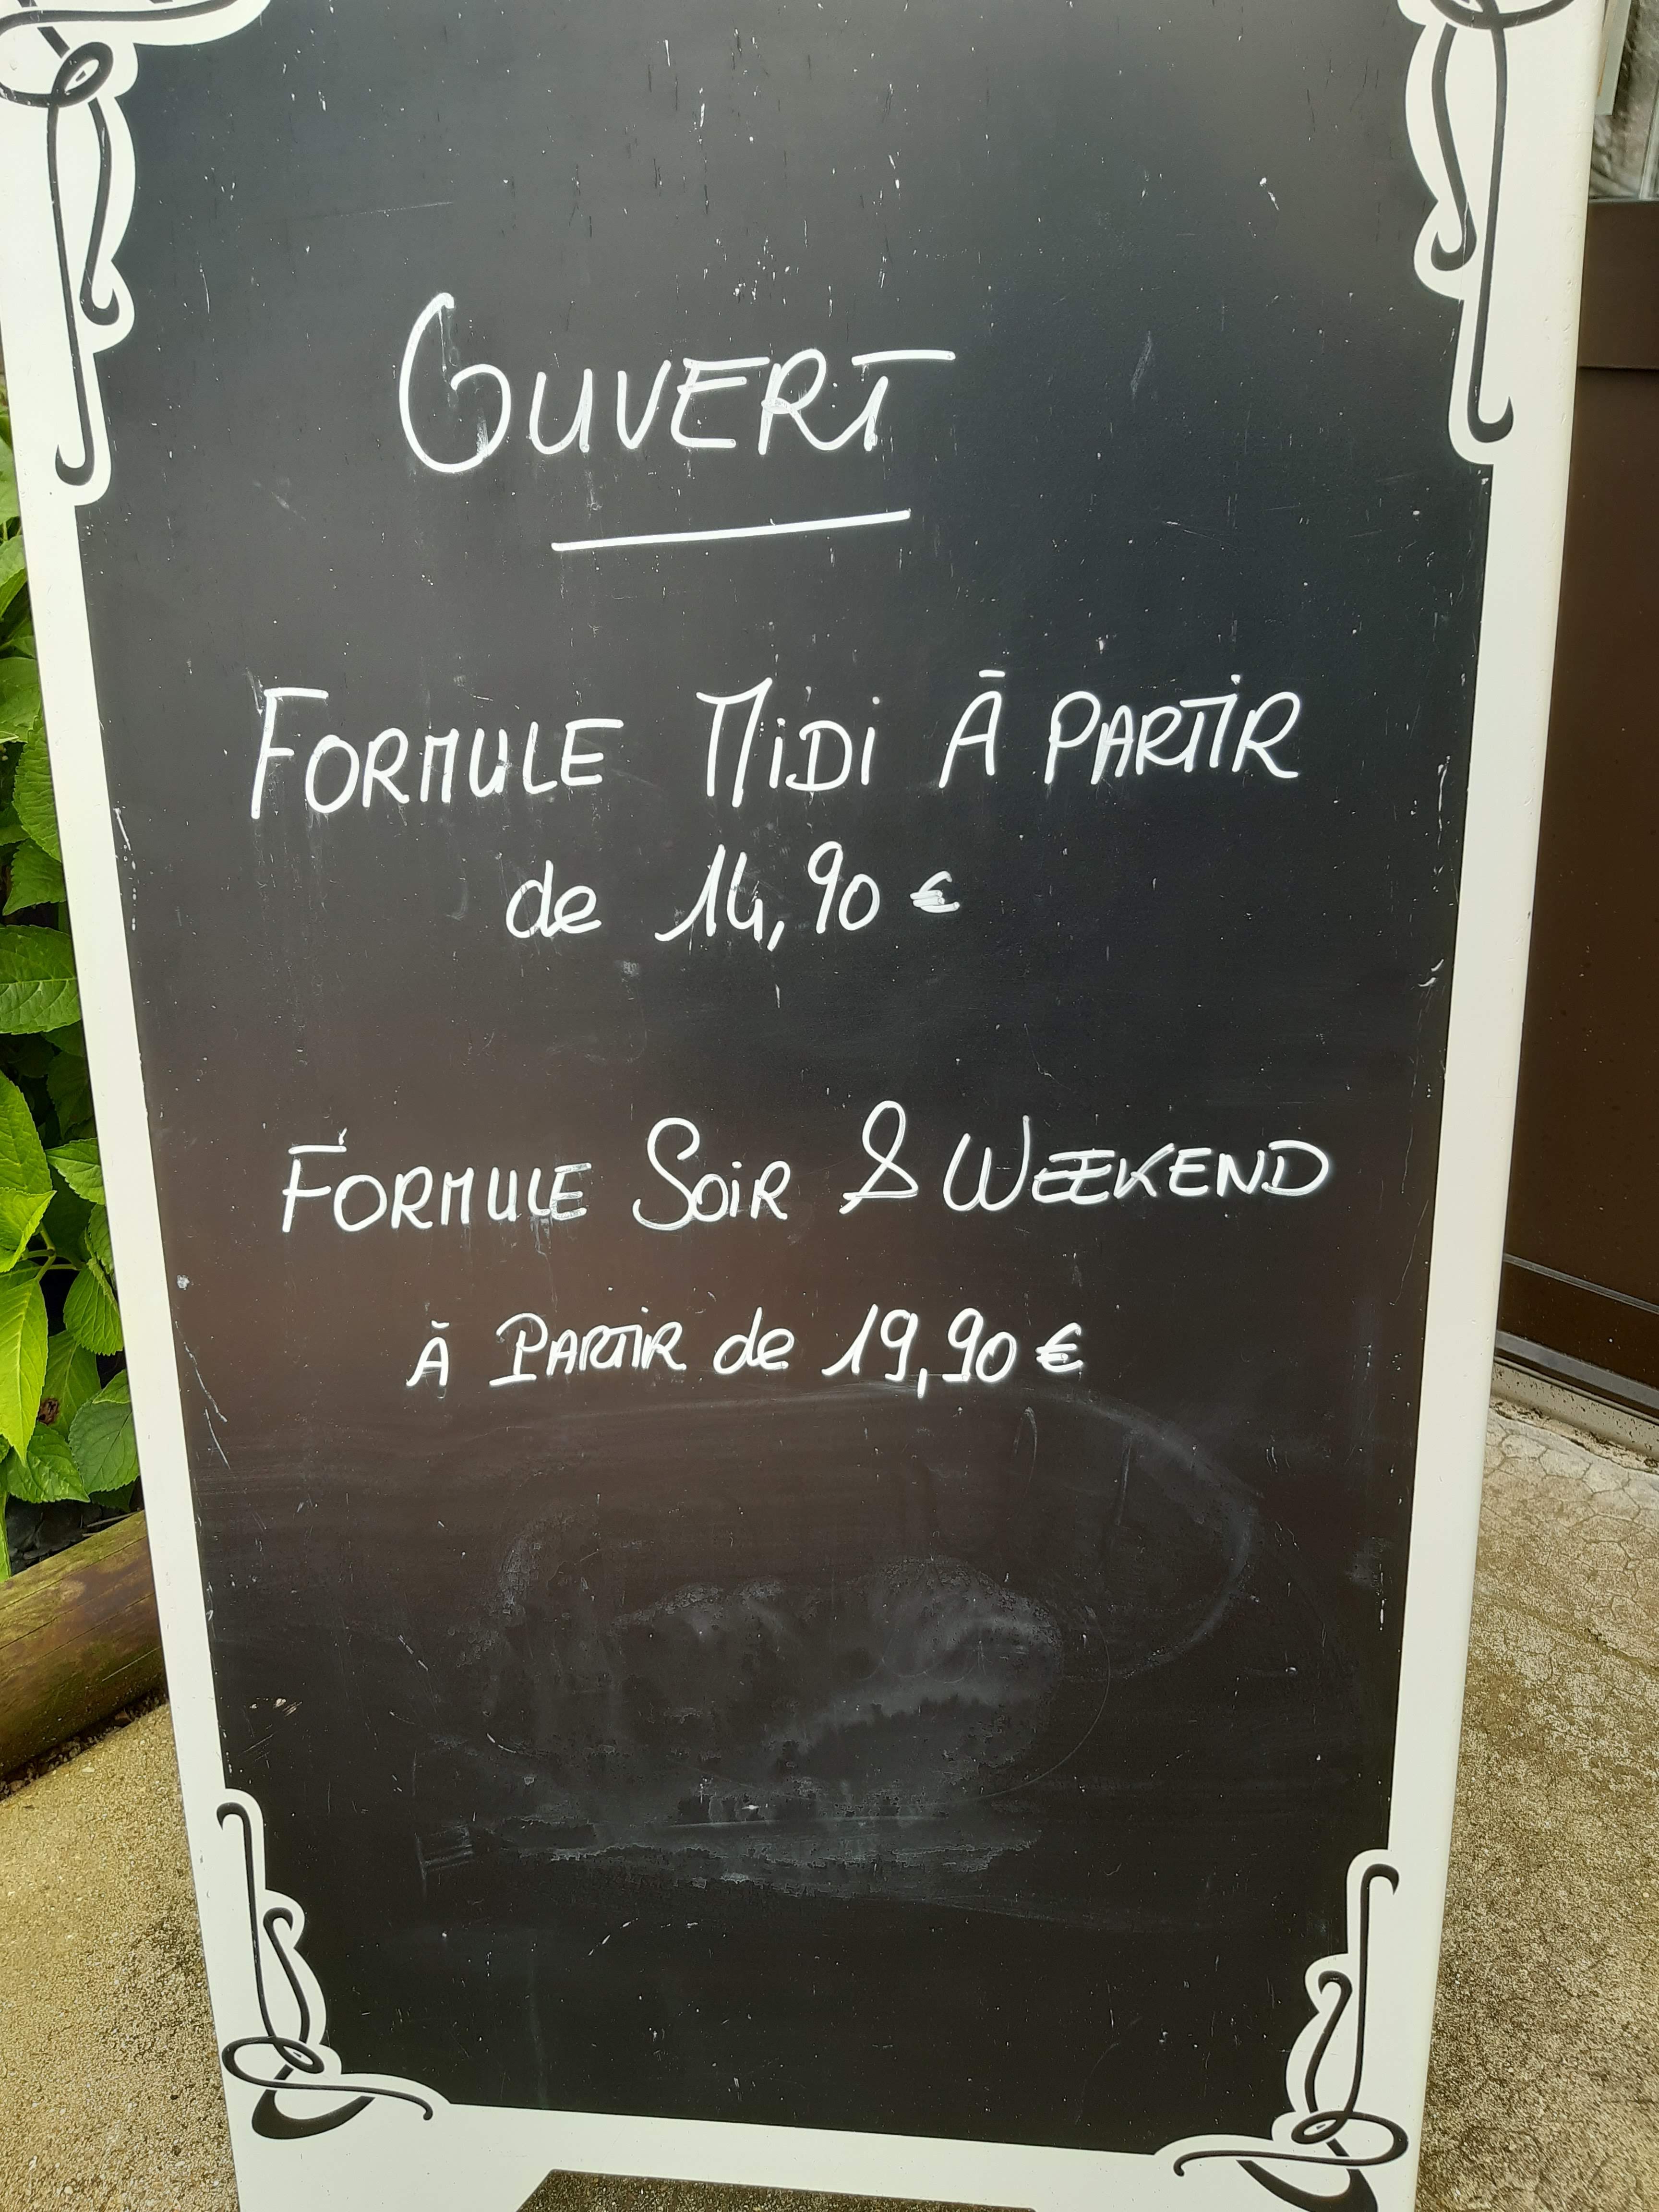 OUVERT
FORMULE MIDI À PARTIR
de 14,90 €
FORMULE SOIR & WEEKEND
À PARTIR de 19,90 €